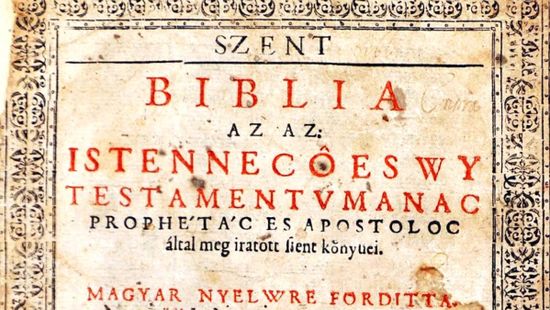 SZENT
BIBLIA
AZ AZ:
ISTENNEC Ô ES WY
TESTAMENTVMANAC
PROPHÉTÁC ES APOSTOLOC
által meg iratott ſient könyuei.
MAGYAR NYELWRE FORDITTA